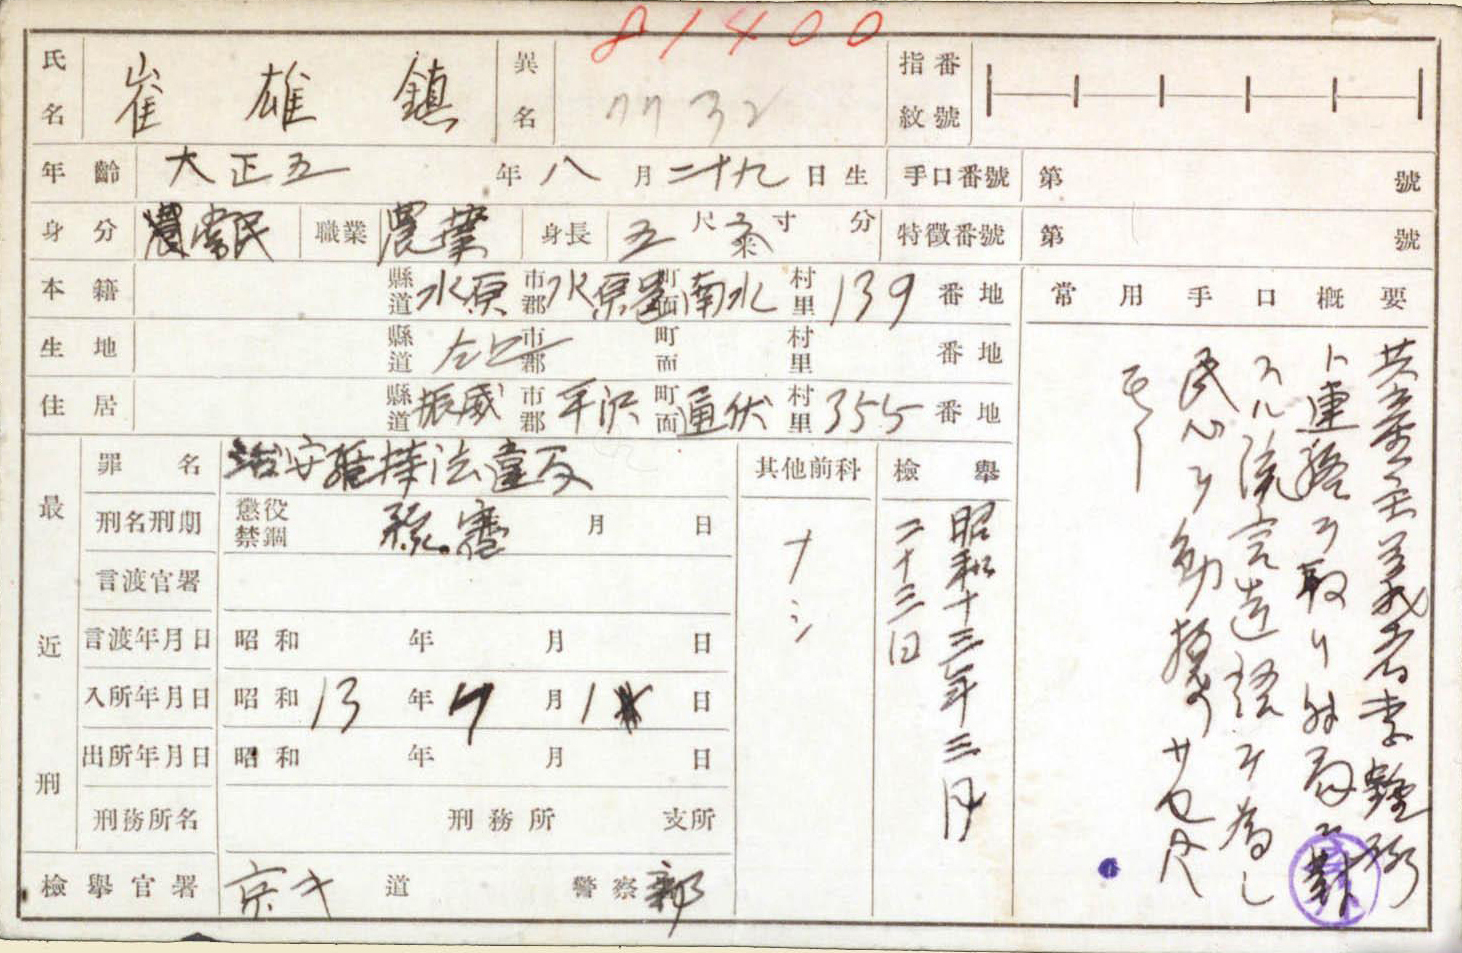 81400
氏名 崔雄鎮 異名 指紋番號
7732
年齢 大正五年八月二十九日生 手口番號 第 號
身分 常民 職業 農業 身長 五尺 寸 分 特徴番號 第 號
本籍 縣道 水原 市郡 水原邑 町面 南水 村里 139 番地
生地 縣道 仝上 市郡 町面 村里 番地
住居 縣道 振威 市郡 平沢 町面 通伏 村里 355 番地
最近刑
罪名 治安維持法違反
刑名刑期 懲役 禁錮 月 日
言渡官署
言渡年月日 昭和 年 月 日
入所年月日 昭和13年7月1 日
出所年月日 昭和 年 月 日
刑務所名 刑務所 支所
其他前科
ナシ
檢擧
昭和十三年三月
二十三日
檢擧官署 京キ道 警察部
常用手口概要
共産主義者李
ト連絡ヲ取リ時局ニ對
スル流言造語ヲ為シ
民心ヲ動揺 サセタ
モノ